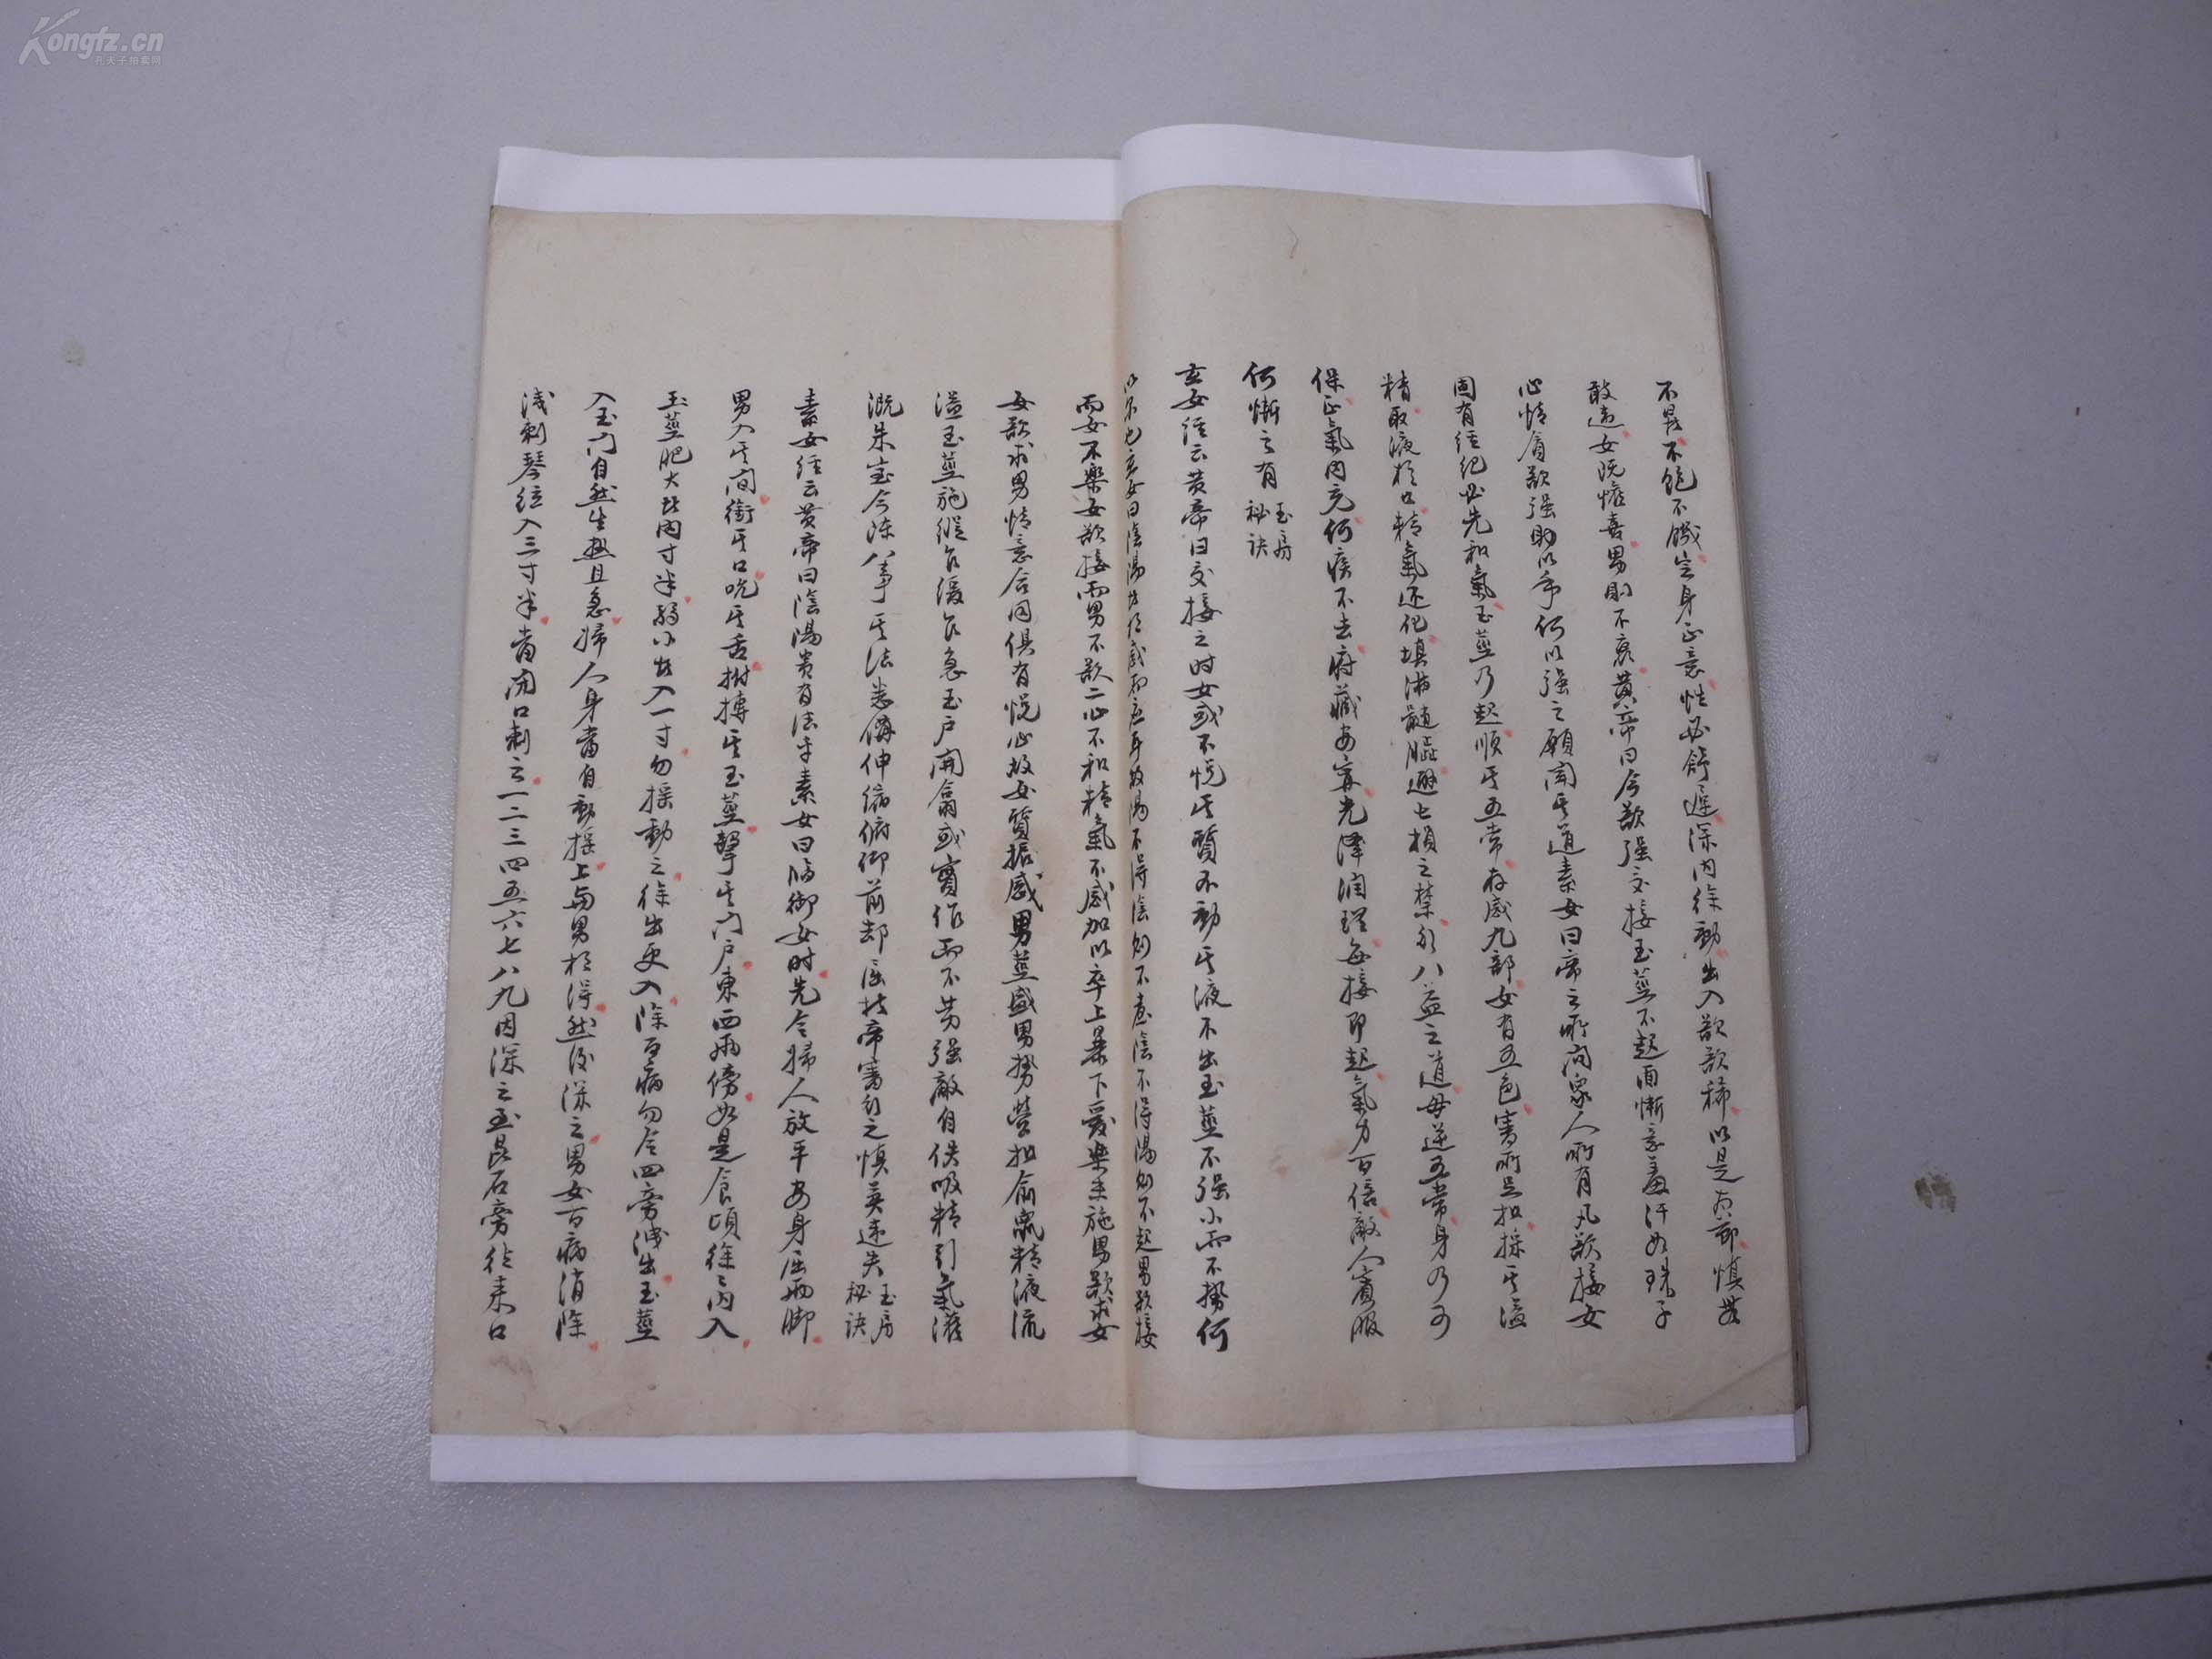 Kongfz.cn
孔夫子拍卖网
不暑不飽不饑定身正意性必舒遲深内徐動出入欲欲稀以是为節慎無
敢違女既懽喜男則不衰黄帝曰今欲强交接玉莖不起面慚意羞汗如珠子
心情貪欲强助以手何以强之願聞其道素女曰帝之所问衆人所有凡欲接女
固有经纪必先和氣玉莖乃起順其五常存感九部女有五色審所足扣採其溢
精取液於口精氣还化填滿髓腦避七損之禁行八益之道毋逆五常身乃可
保正氣内充何疾不去府藏安寧光澤润理每接即起氣力百倍敵人賓服
何慚之有 玉房
秘诀
玄女经云黄帝曰交接之时女或不悦其質不動其液不出玉莖不强小而不勢何
以尔也玄女曰陰陽者相感而应耳故陽不得陰则不喜陰不得陽则不起男欲接
而女不樂女欲接而男不欲二心不和精氣不感加以卒上暴下爱樂未施男欲求女
女欲求男情意合同俱有悦心故女質振感男莖盛男勢营扣俞鼠精液流
溢玉莖施縱乍缓乍急玉户開翕或實作而不劳强敵自佚吸精引氣灌
溉朱室今陈八事其法悉備伸缩俯仰前却屈折帝審行之慎莫違失 玉房
秘诀
素女经云黄帝曰陰陽贵有法乎素女曰临御女时先令婦人放平安身屈兩脚
男入其间銜其口吮其舌拊搏其玉莖擊其门户東西兩傍如是食頃徐徐内入
玉莖肥大者内寸半弱小者入一寸勿摇動之徐出更入除百病勿令四旁洩出玉莖
入玉门自然生热且急婦人身當自動摇上与男相得然後深之男女百病消除
浅刺琴弦入三寸半當闭口刺之一二三四五六七八九因深之至昆石旁往来口